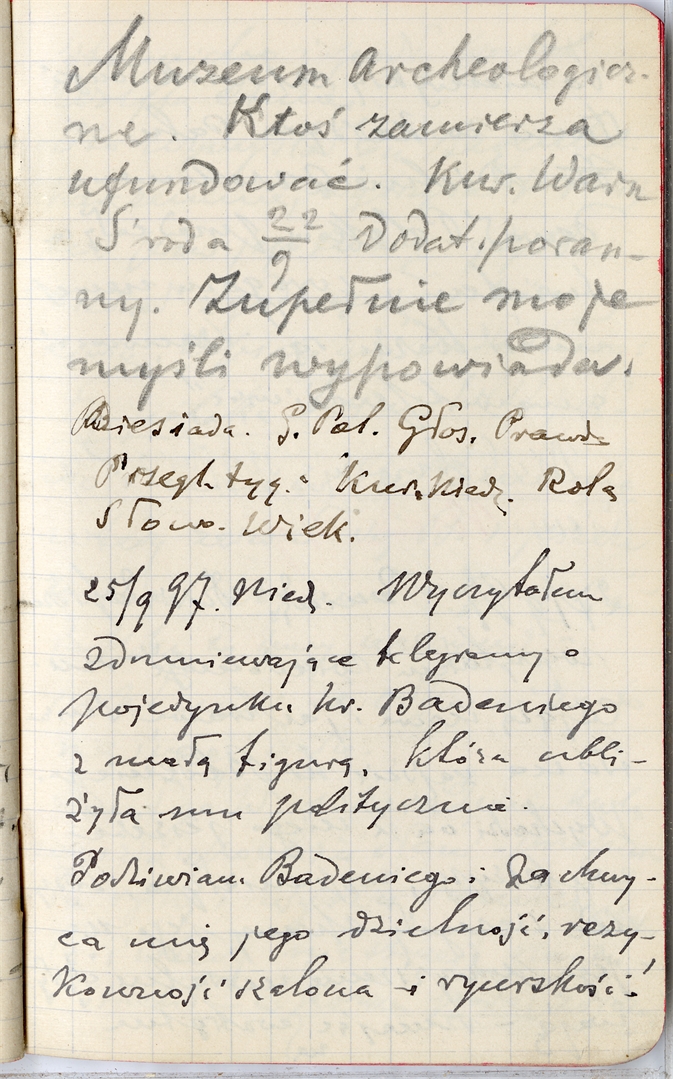 Muzeum Archeologicz-
ne. Ktoś zamierza
ufundować. Kur. Warsz
Środa 22/9 Dodat. poran-
ny. Zupełnie moje
myśli wypowiada.
Biesiada. G. Pol. Głos. Prawda
Przegl. tyg. Kur. Niedz. Rola
Słowo. Wiek.
25/9 97. Niedz. Wyczytałem
zdumiewające telegramy o
pojedynku hr. Badeniego
z małą figurą, która ubli-
żyła mu politycznie.
Podziwiam Badeniego i zachwy-
ca mię jego dzielność, rezy-
kowność szalona i rycerskość!